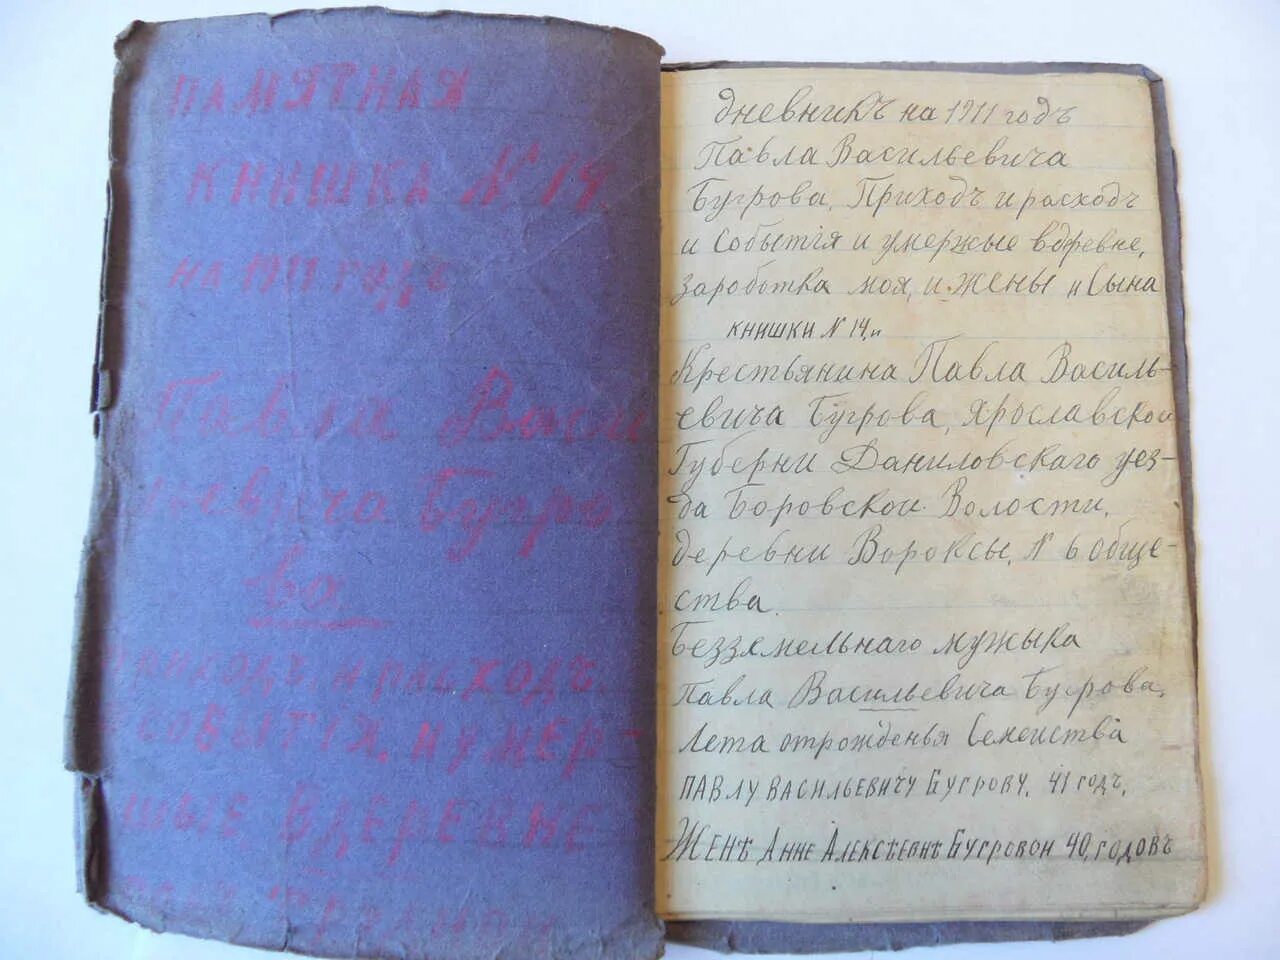 ПАМЯТНАЯ
КНИШКА № 14.
НА 1911 ГОДЪ
Павла Васи
льевича Бугро
ва.
ПРИХОДЪ. И РАСХОДЪ,
СОБЫТІЯ. И УМЕР-
ШЫЕ, ВДЕРЕВНЕ
дневникъ на 1911 годъ
Павла Васильевича
Бугрова, Приходъ и расходъ
и События и умержые вдревне,
зароботка моя, и жены и Сына
книшки № 14,и
Крестьянина Павла Василь-
евича Бугрова, Ярославской
Губерни Даниловскаго уез-
да Боровской Волости,
деревни Вороксы, № 6 обще-
ства.
Безземельнаго мужыка
Павла Васильевича Бугрова,
Лета отрожденья Семеиства
ПАВЛУ ВАСИЛЬЕВИЧУ БУГРОВУ, 41 годъ,
ЖЕНѢ АННЕ АЛЕКСѢЕВНѢ БУГРОВОИ 40, ГОДОВЪ